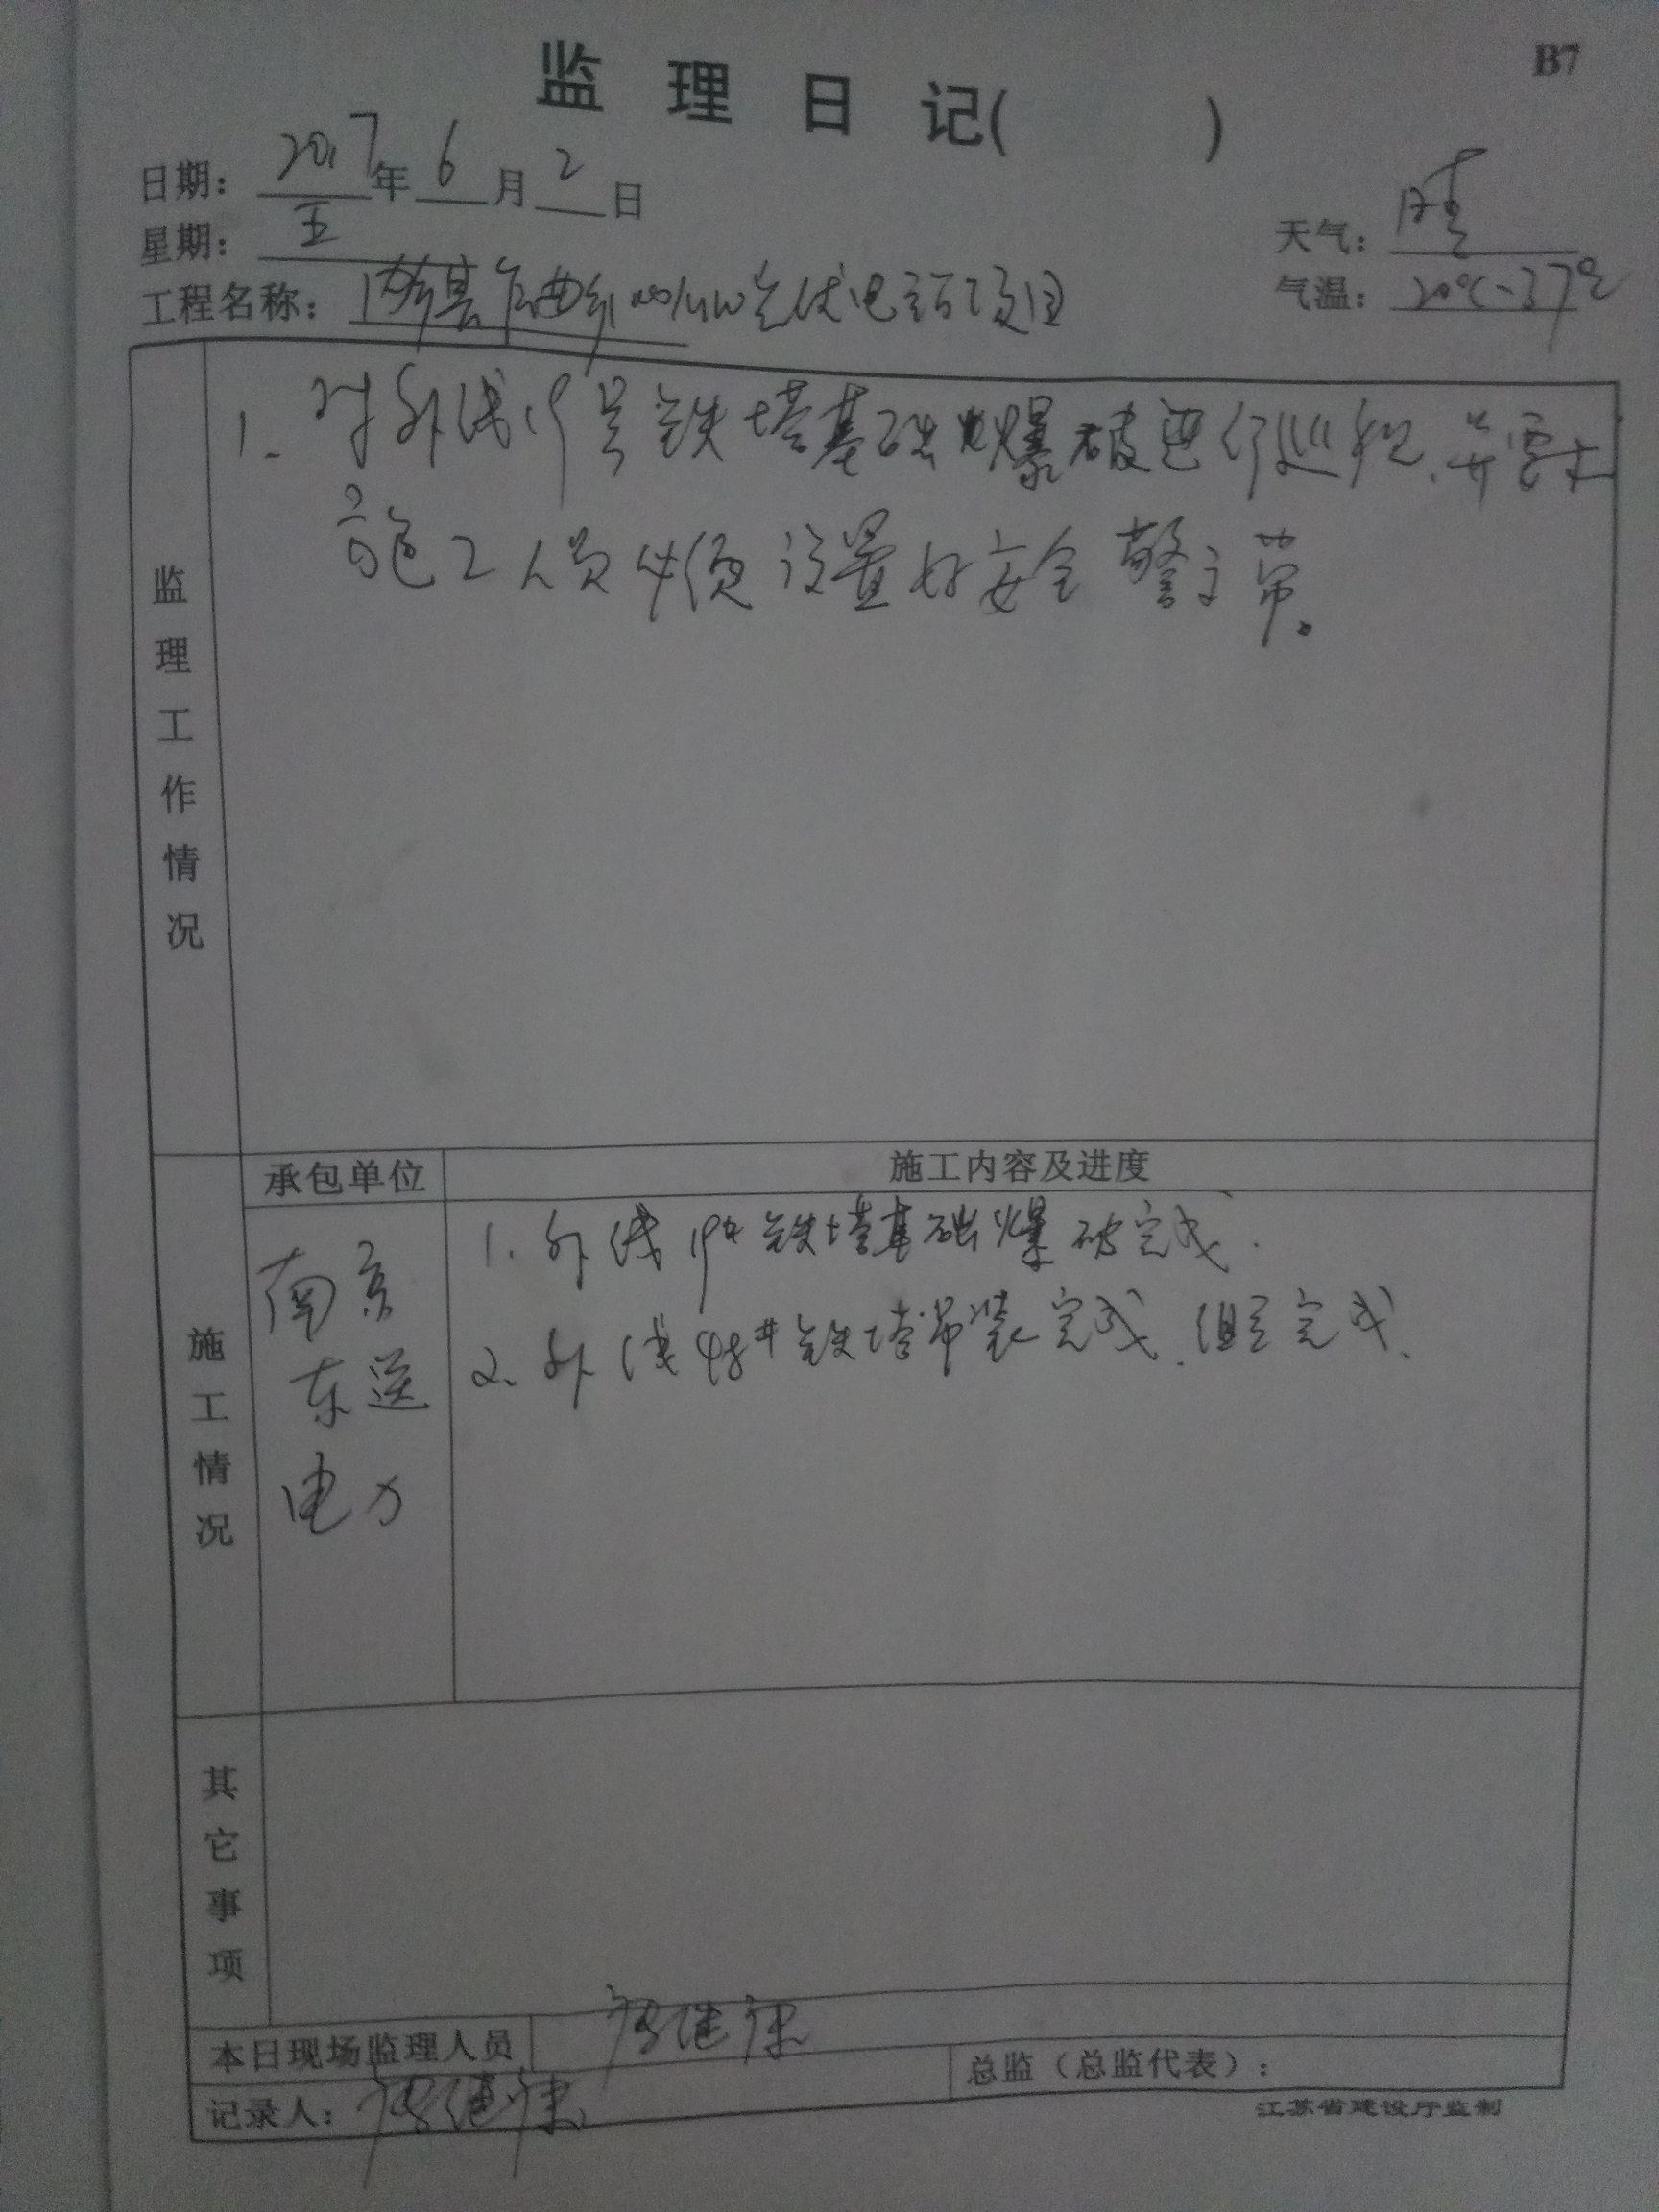 B7
监理日记( )
日期: 2017年6月2日
星期: 五
天气: 晴
工程名称: 县 曲乡100MW光伏电站项目
气温: 20℃-37℃
监理工作情况
1. 对外线19号铁塔基础爆破进行巡视、并要求
施工人员必须设置好安全警示带。
施工情况
承包单位
施工内容及进度
南京
东送
电力
1. 外线19#铁塔基础爆破完成.
2. 外线48#铁塔吊装完成、组立完成、
其它事项
本日现场监理人员 继康
记录人: 继康
总监（总监代表）:
江苏省建设厅监制